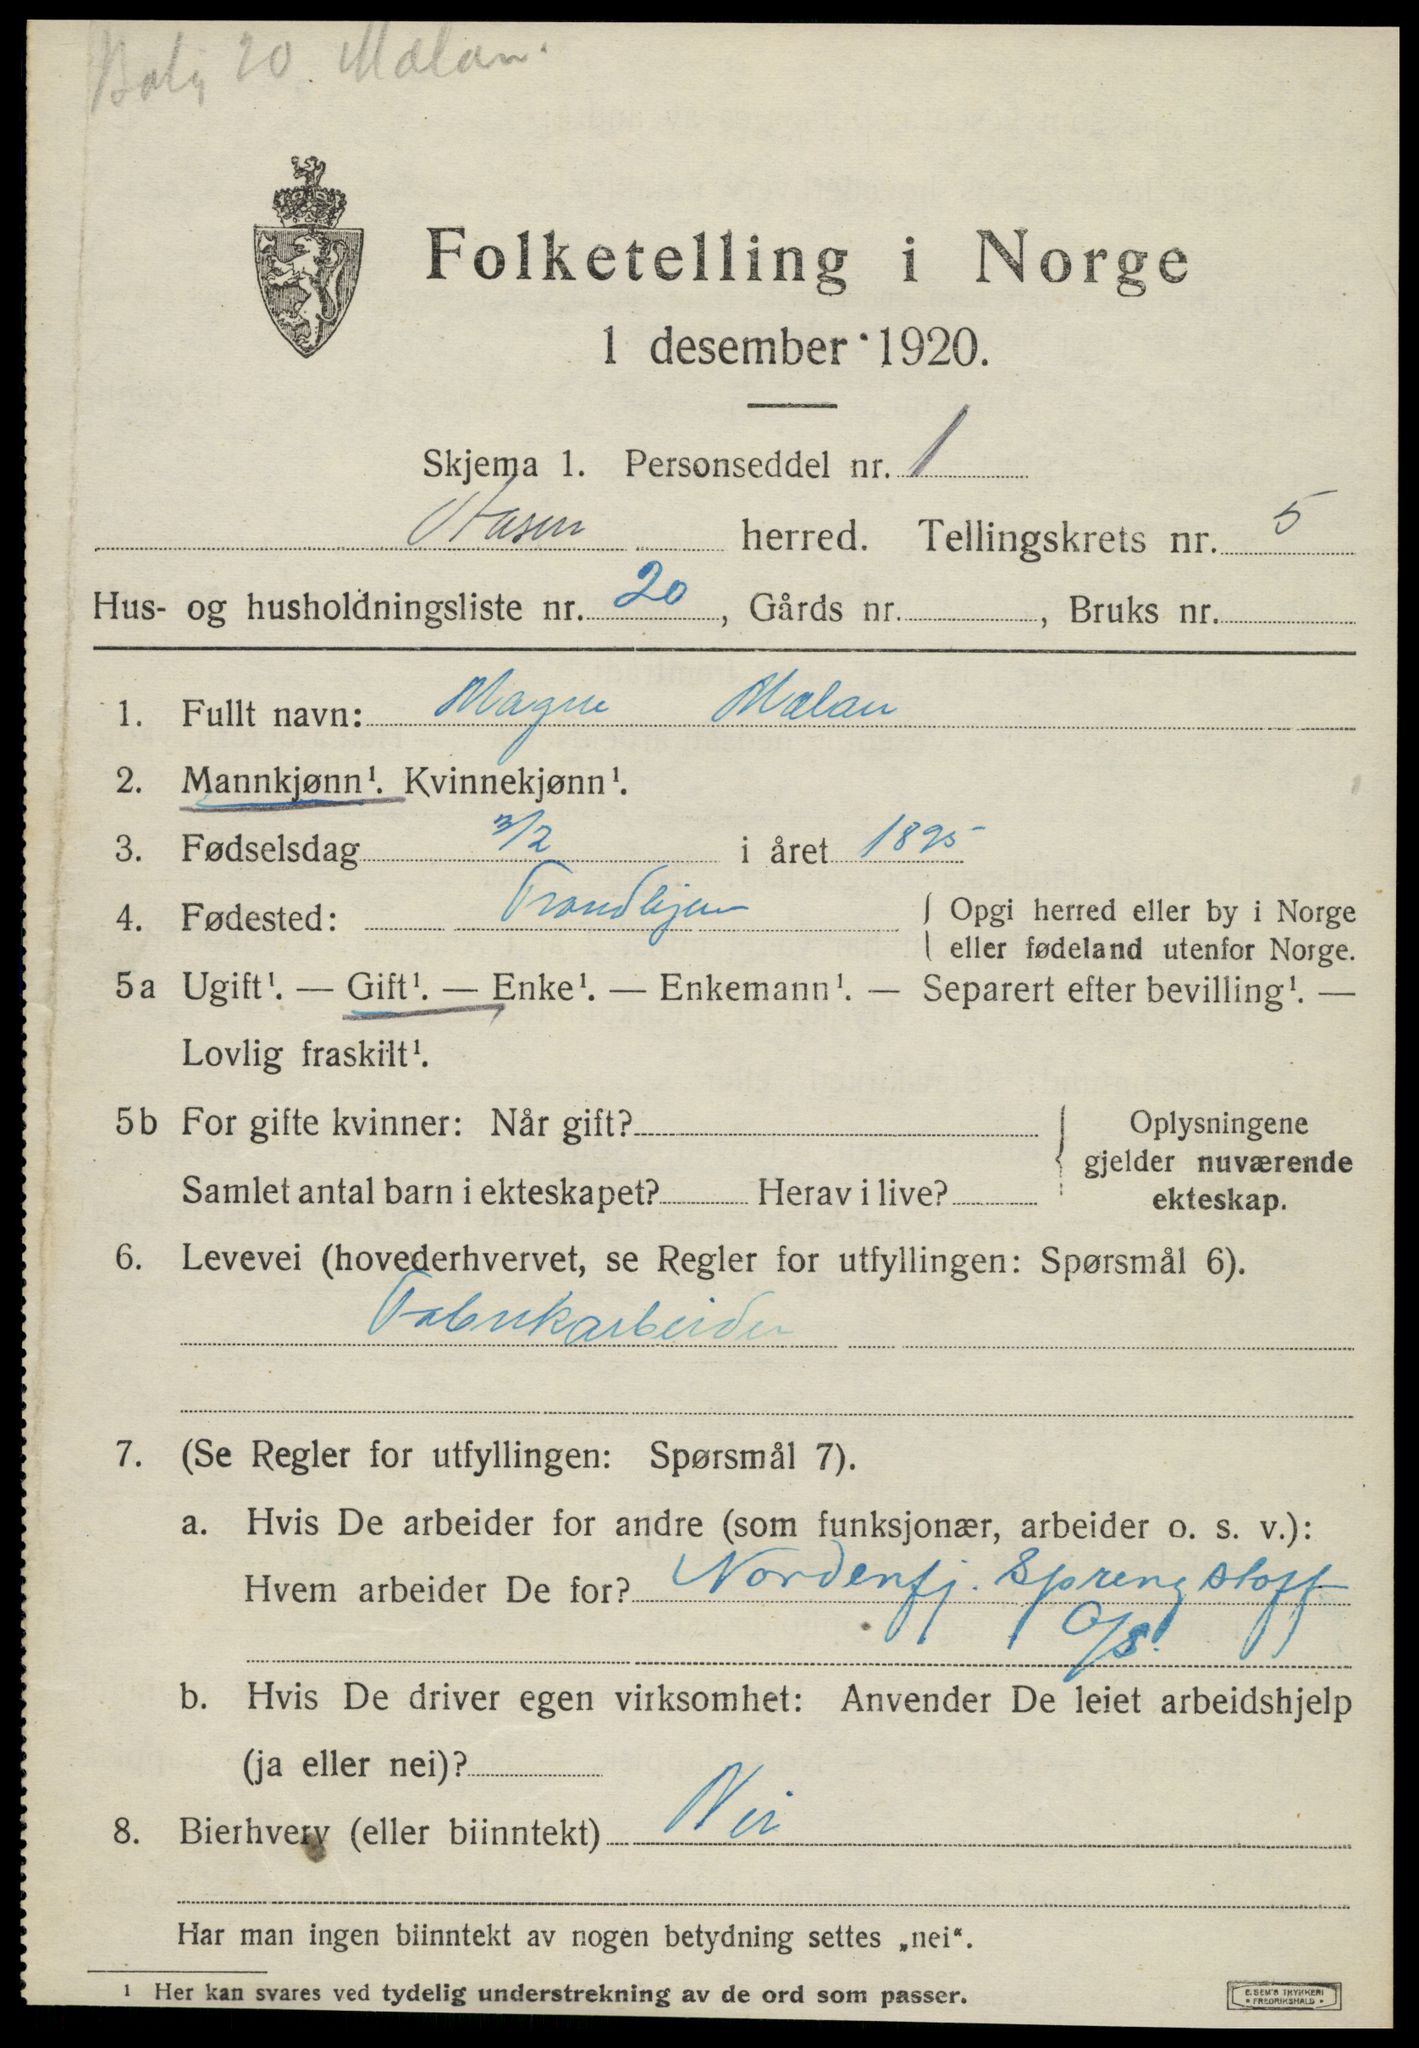 Bolig 20 Mælan.
Folketelling i Norge
1 desember 1920.
Skjema 1. Personseddel nr. 1
Åsen herred. Tellingskrets nr. 5
Hus- og husholdningsliste nr. 20, Gårds nr. , Bruks nr.
1. Fullt navn: Magne Mælan
2. Mannkjønn¹. Kvinnekjønn¹.
3. Fødselsdag 3/2 i året 1895
4. Fødested: Trondhjem { Opgi herred eller by i Norge
eller fødeland utenfor Norge.
5a Ugift¹. — Gift¹. — Enke¹. — Enkemann¹. — Separert efter bevilling¹. —
Lovlig fraskilt¹.
5b For gifte kvinner: Når gift? { Oplysningene
gjelder nuværende
Samlet antal barn i ekteskapet? Herav i live? ekteskap.
6. Levevei (hovederhvervet, se Regler for utfyllingen: Spørsmål 6).
Fabrikarbeider
7. (Se Regler for utfyllingen: Spørsmål 7).
a. Hvis De arbeider for andre (som funksjonær, arbeider o. s. v.):
Hvem arbeider De for? Nordenfj. Sprengstoff
A/S
b. Hvis De driver egen virksomhet: Anvender De leiet arbeidshjelp
(ja eller nei)?
8. Bierhverv (eller biinntekt) Nei
Har man ingen biinntekt av nogen betydning settes „nei“.
¹ Her kan svares ved tydelig understrekning av de ord som passer.
E. SEM'S TRYKKERI
• FREDRIKSHALD •